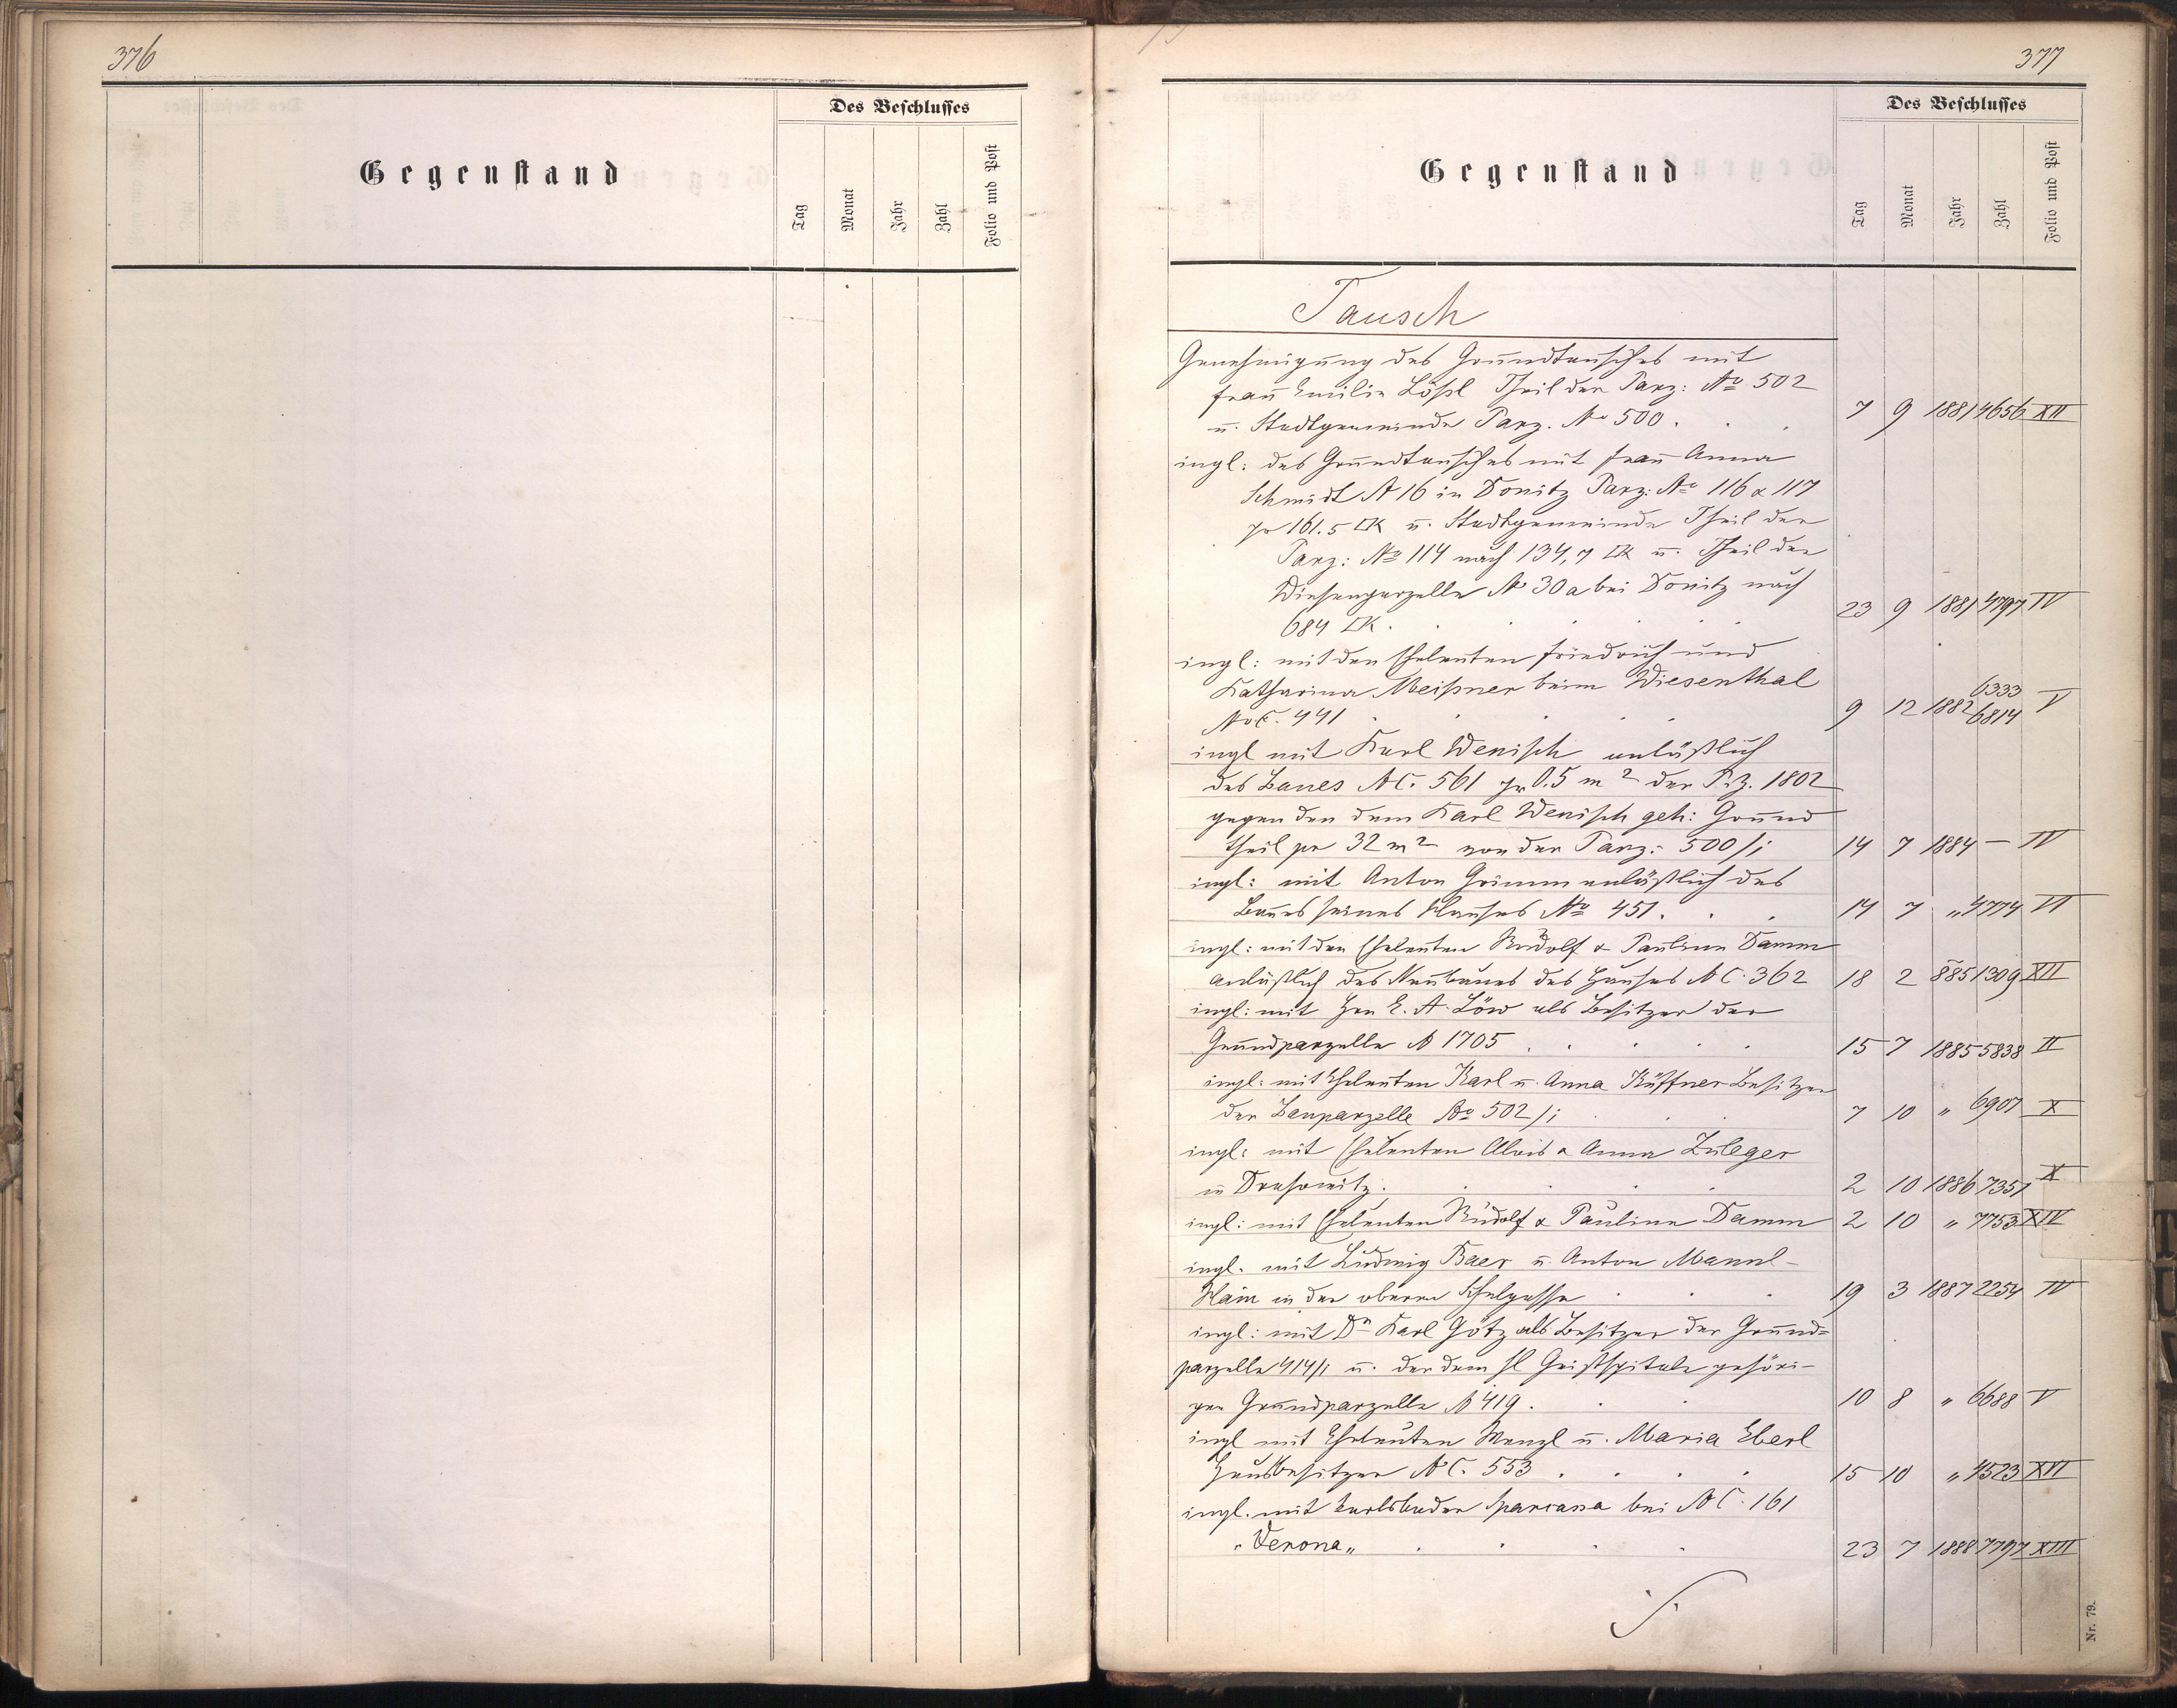 376
Des Beschlusses
Gegenstand
Tag
Monat
Jahr
Zahl
Folio und Post
377
Des Beschlusses
Gegenstand
Tag
Monat
Jahr
Zahl
Folio und Post
Tausch
Genehmigung des Grundtausches mit
Frau Emilie Lößl Theil der Parz: No 502
u. Stadtgemeinde Parz. No 500 . . . 7 9 1881 4656 XII
ingl: des Grundtausches mit Frau Anna
Schmidt N 16 in Donitz Parz: No 116 & 117
pr 161.5 □K u. Stadtgemeinde Theil der
Parz: No 114 nach 134,7 □K u. Theil der
Wiesenparzelle No 30a bei Donitz nach
684 □K . . . . . 23 9 1881 4797 IV
ingl: mit den Eheleuten Friedrich und
Katharina Meißner beim Wiesenthal
No C. 441 . . . . . 9 12 1882 6333 6814 V
ingl mit Karl Wenisch anläßlich
des Baues NC. 561 pr 0.5 m2 der P.Z. 1802
gegen den dem Karl Wenisch geh: Grund
theil pr 32 m2 von der Parz: 500/1 14 7 1884 — IV
ingl: mit Anton Grimm anläßlich des
Baues seines Hauses No 451 . . . 14 7 „ 4774 VI
ingl: mit den Eheleuten Rudolf & Pauline Damm
anläßlich des Neubaues des Hauses NC. 362 18 2 885 1309 XII
ingl: mit Hrn E. A. Löw als Besitzer der
Grundparzelle N 1705 . . . . 15 7 1885 5838 II
ingl: mit Eheleuten Karl u. Anna Küffner Besitzer
der Bauparzelle No 502/1 . . . 7 10 „ 6907 X
ingl: mit Eheleuten Alois & Anna Zuleger
in Drahowitz . . . . 2 10 1886 7351 X
ingl: mit Eheleuten Rudolf & Pauline Damm 2 10 „ 7753 XIV
ingl. mit Ludwig Baer u. Anton Mannl-
Hain in der oberen Schulgasse . . . 19 3 1887 2254 IV
ingl: mit Dr Karl Götz als Besitzer der Grund=
parzelle 414/1 u. der dem hl Geistspitale gehöri-
gen Grundparzelle N 419 . . . 10 8 „ 6688 V
ingl mit Eheleuten Wenzl u. Maria Eberl
Hausbesitzer NC. 553 . . . . 15 10 „ 4523 XVI
ingl. mit Karlsbader Sparcassa bei NC. 161
„Verona„ . . . . 23 7 1888 7797 XIII
Nr. 79.